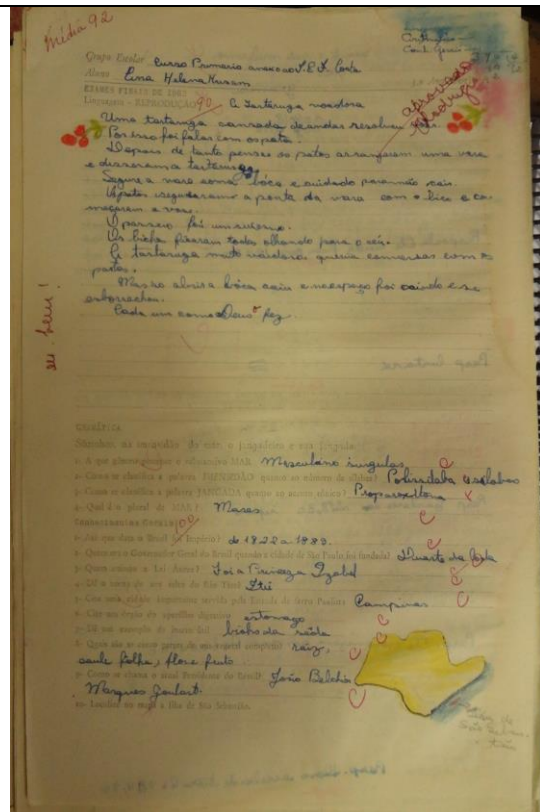 média 92
Grupo Escolar Curso Primario anexo ao I.E.
Aluna Ema Helena
EXAMES FINAIS DE 1962
Linguagem - REPRODUÇÃO 90 A tartaruga vaidosa
aprovada
Uma tartaruga cansada de andar resolveu
Por isso foi falar com os patos.
Depois de tanto pensar os patos arranjaram uma vara
e disseram a tartaruga
Segure a vara com a bôca e cuidado para não cair.
Os patos seguraram a ponta da vara com o bico e co
meçaram a voar.
O passeio foi um sucesso.
Os bichos ficaram todos olhando para o céu.
A tartaruga muito vaidosa queria conversar com os
patos.
Mas ao abrir a bôca caiu e no espaço foi caindo e se
esborrachou.
Cada um como Deus o fez.
seu bem!
GRAMÁTICA
1- A que gênero o substantivo MAR Masculino singular
2- Como se classifica a palavra quanto ao número de sílabas? Polissílaba 4 sílabas
3- Como se classifica a palavra JANGADA quanto ao acento tônico? Proparoxítona
4- Qual é o plural de MAR? Mares
CONHECIMENTOS GERAIS 100
1- Até que data o Brasil Império? de 1822 a 1889.
2- Quem era o Governador Geral do Brasil quando a cidade de São Paulo foi fundada? Duarte da Costa
3- Quem assinou a Lei Áurea? Foi a Princeza Izabel
4- Dê o nome de um salto do Rio Tietê Itú
5- Cite uma cidade importante servida pela Estrada de Ferro Paulista Campinas
6- Cite um órgão do aparelho digestivo estomago
7- Dê um exemplo de inseto útil bicho da sêda
8- Quais são as cinco partes de um vegetal completo? raiz,
caule folha, flor e fruto
9- Como se chama o atual Presidente do Brasil? João Belchior
Marques Goulart.
10- Localize no mapa a Ilha de São Sebastião.
Ilha de
São Sebas-
tião